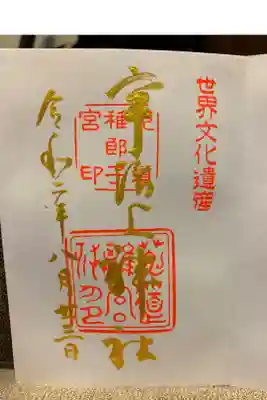 世界文化遺産
宇治上神社
稚郎子
宮印
令和二年八月廿三日